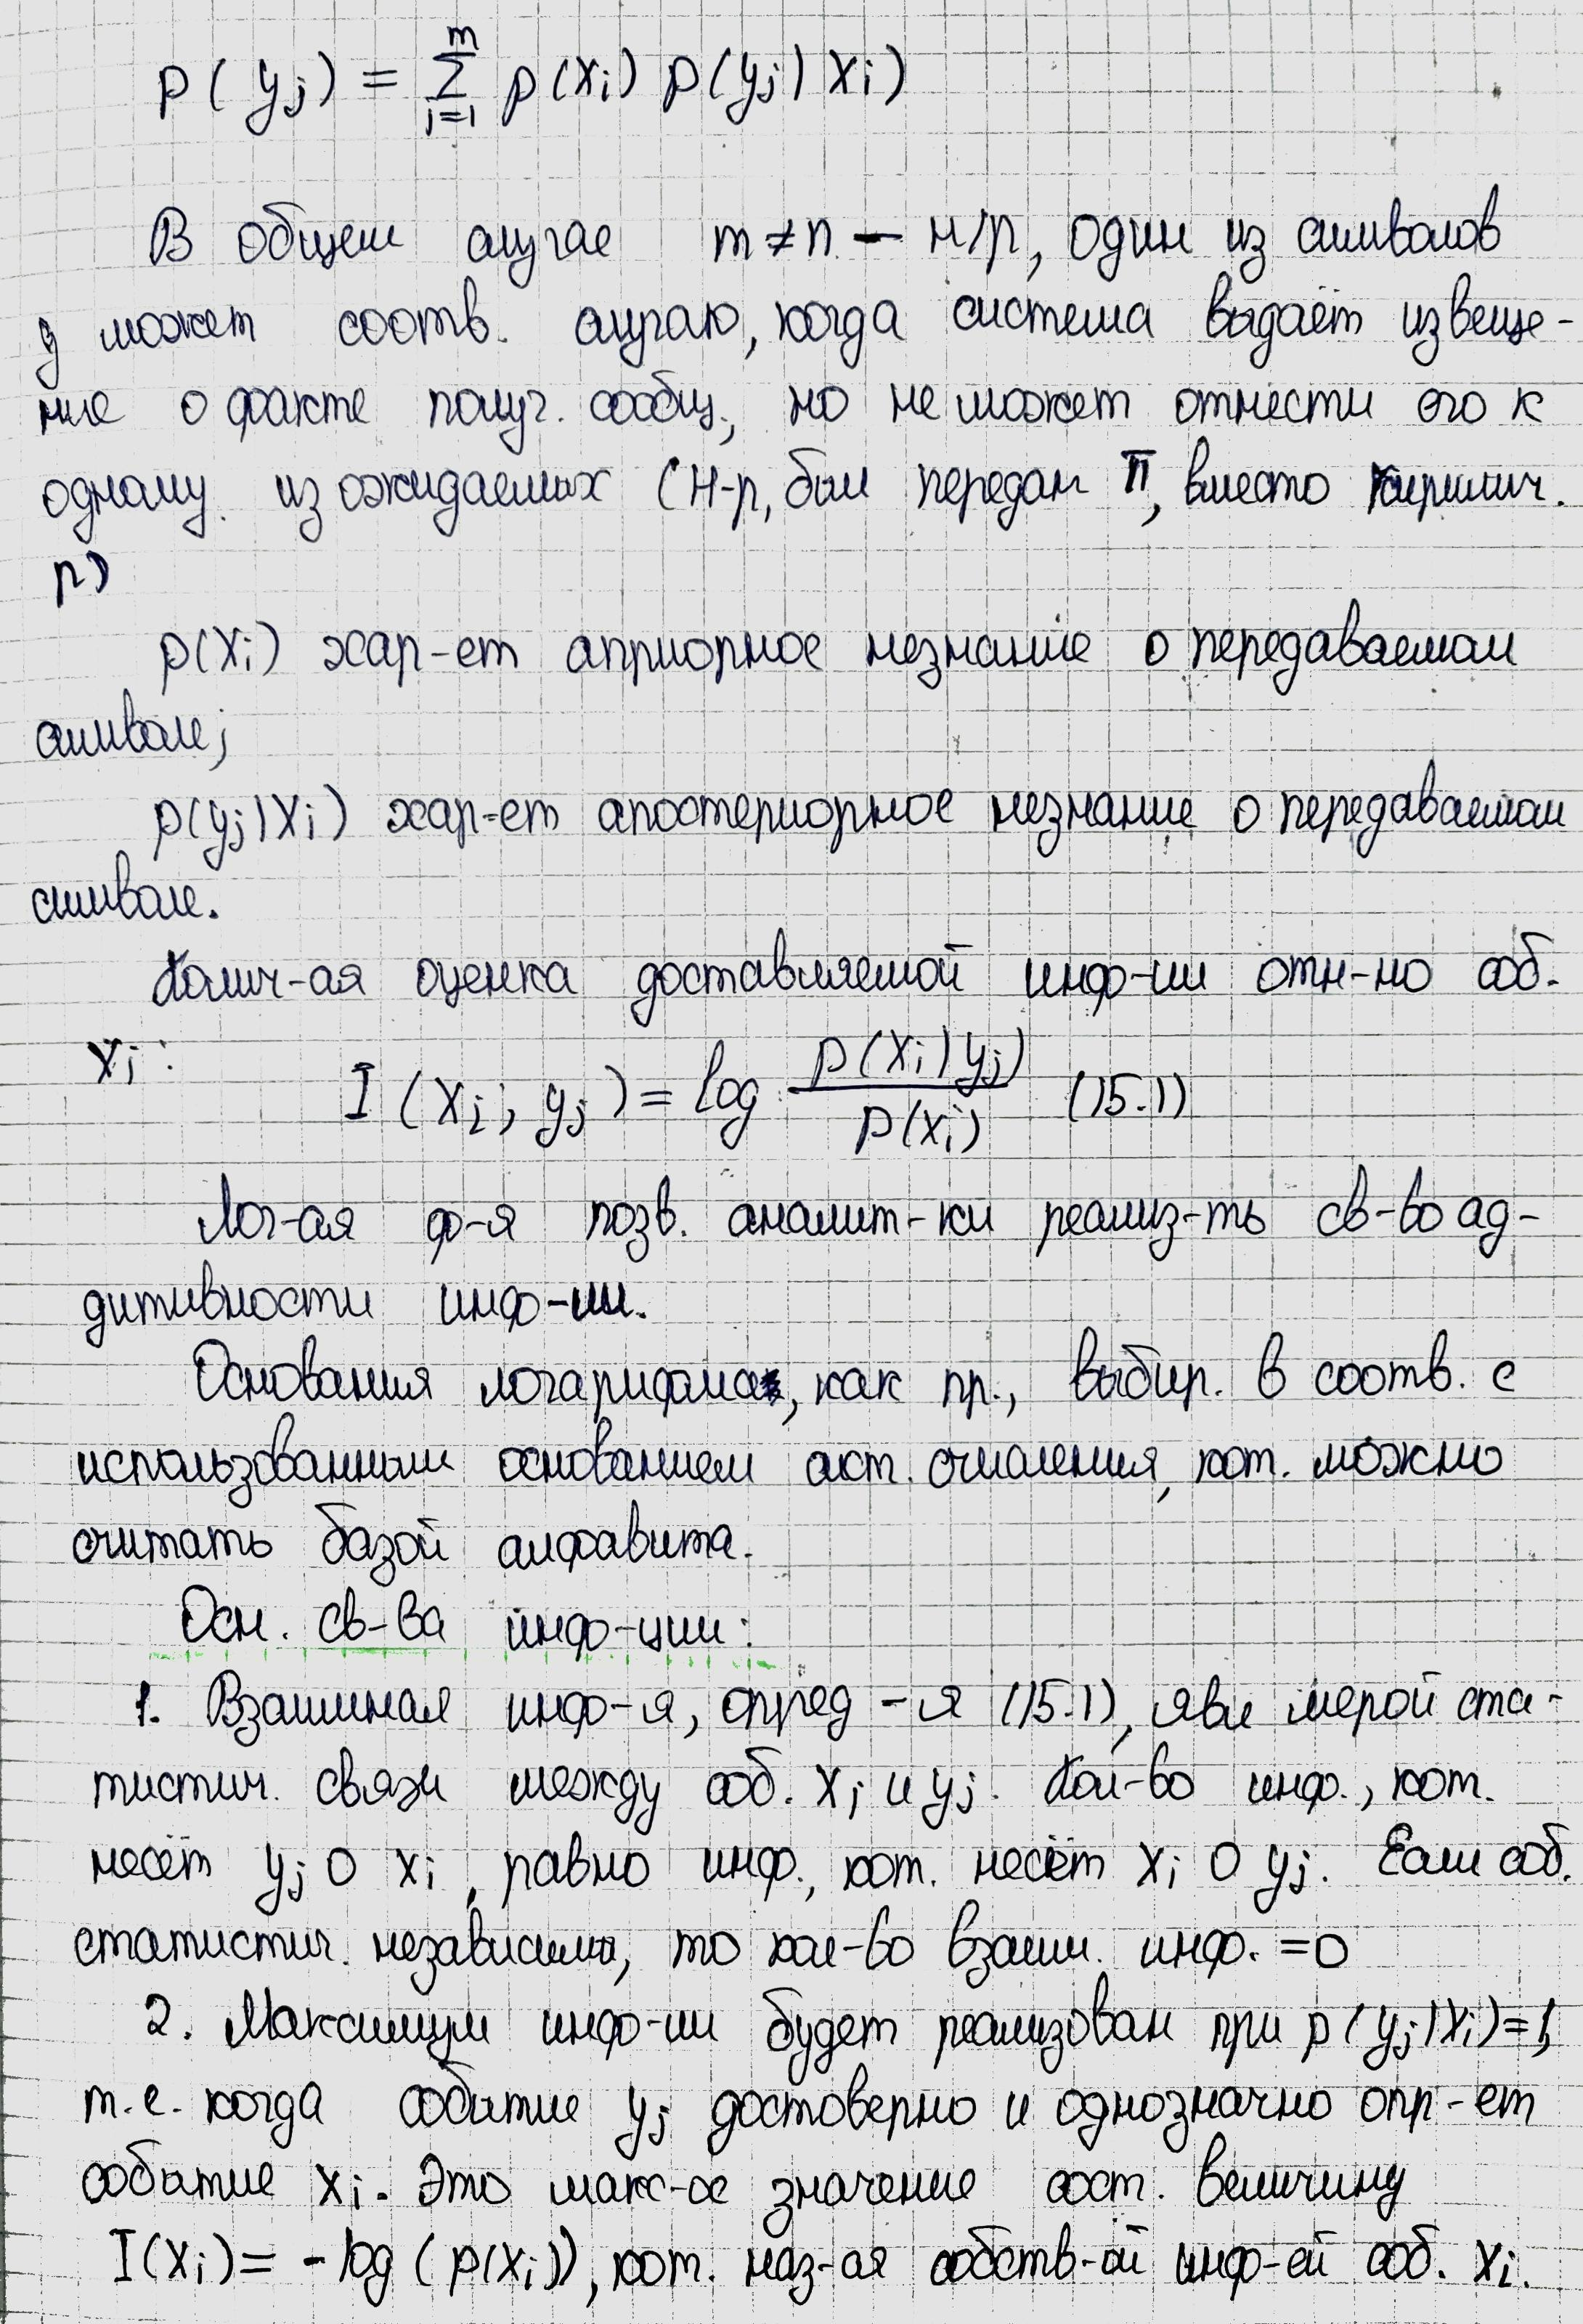 p(yj) = m∑i=1 p(xi) p(yj|xi)
В общем случае m≠n — н/р, один из символов
y может соотв. случаю, когда система выдаёт извеще-
ние о факте получ. сообщ., но не может отнести его к
одному из ожидаемых (н-р, был передан π, вместо кириллич.
п)
p(xi) хар-ет априорное незнание о передаваемом
символе;
p(yj|xi) хар-ет апостериорное незнание о передаваемом
символе.
Колич-ая оценка доставляемой инф-ии отн-но соб.
xi:
I(xi; yj) = log p(xi|yj) / p(xi) (15.1)
Лог-ая ф-я позв. аналит-ки реализ-ть св-во ад-
дитивности инф-ии.
Основания логарифма, как пр., выбир. в соотв. с
использованным основанием сист. счисления, кот. можно
считать базой алфавита.
Осн. св-ва инф-ции:
1. Взаимная инф-я, опред-я (15.1), явл мерой ста-
тистич. связи между соб. xi и yj. Кол-во инф., кот.
несёт yj о xi, равно инф., кот. несёт xi о yj. Если соб.
статистич. независимы, то кол-во взаим. инф. =0
2. Максимум инф-ии будет реализован при p(yj|xi)=1,
т.е. когда событие yj достоверно и однозначно опр-ет
событие xi. Это макс-ое значение сост. величину
I(xi) = -log(p(xi)), кот. наз-ая собств-ой инф-ей соб. xi.